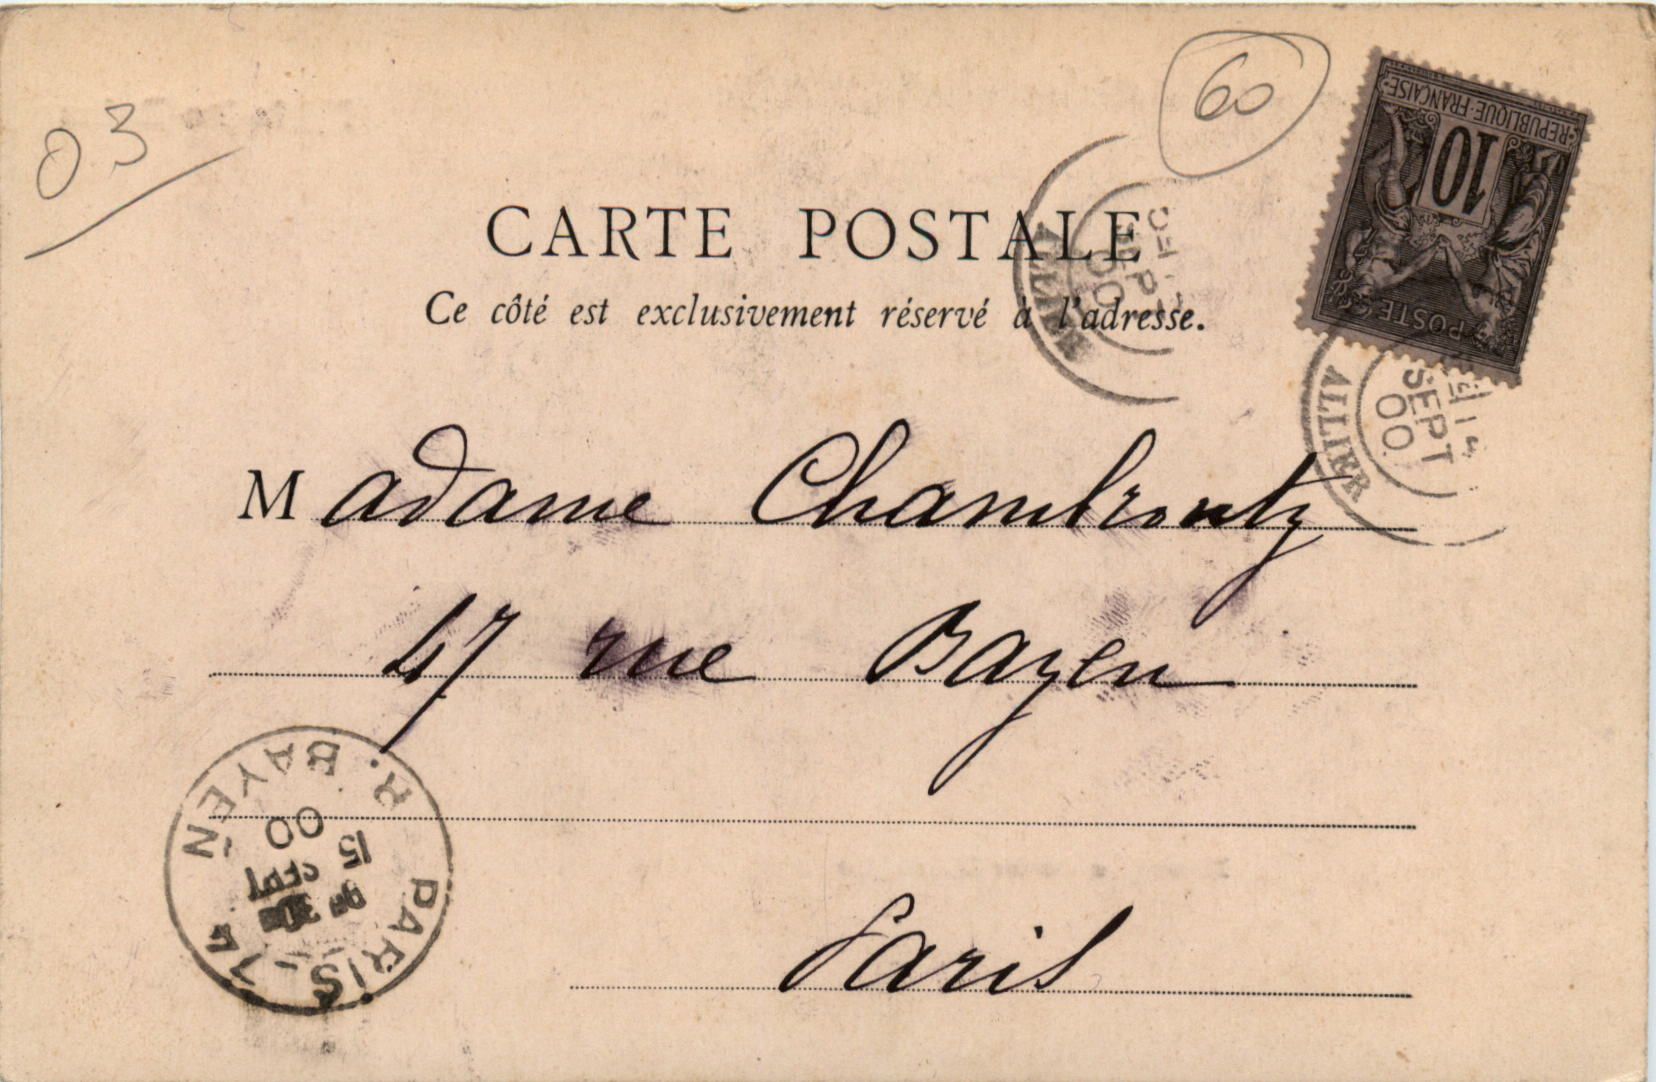 03
60
REPUBLIQUE·FRANÇAISE
10
POSTES
CARTE POSTALE
Ce côté est exclusivement réservé à l'adresse.
ALLIER
SEPT
00
ALLIER
14
SEPT
00
Madame
47 rue Bayen
PARIS. 17
R. BAYEN
15
SEPT
00
Paris